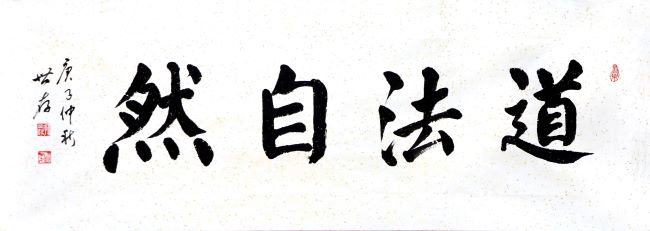 道法自然
庚子仲秋
世存